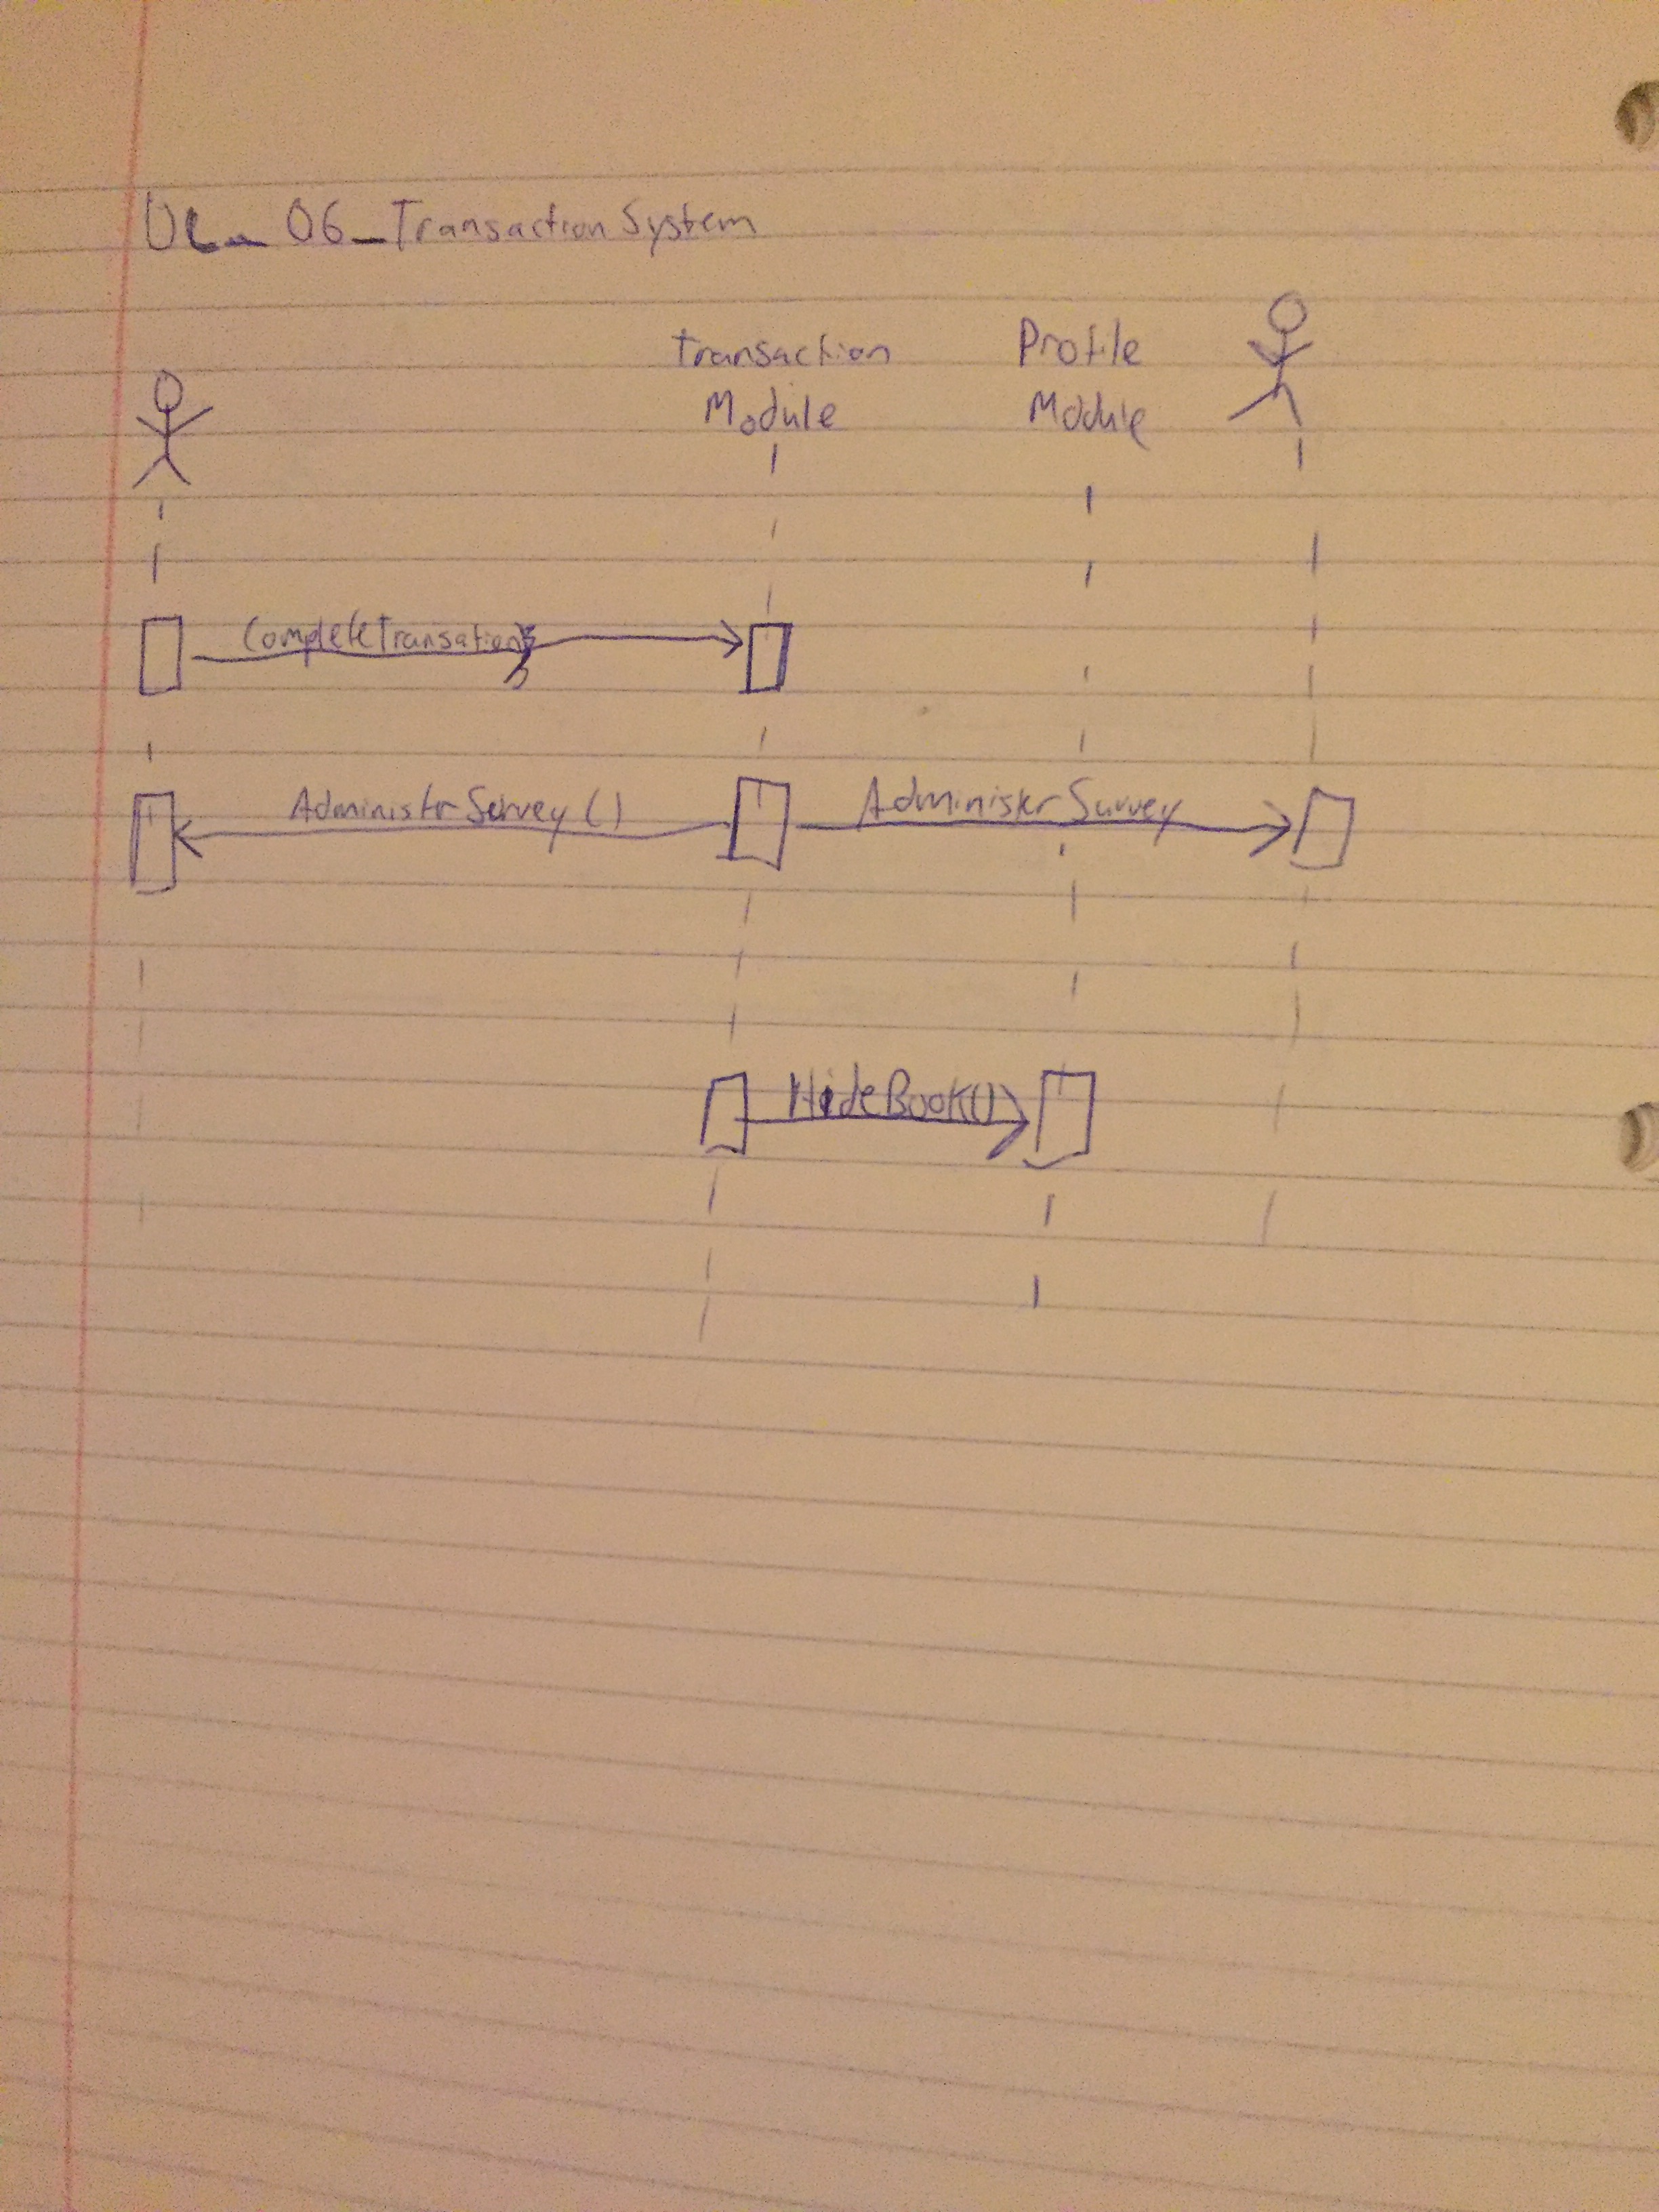 UC_06_TransactionSystem
Transaction Module
Profile Module
CompleteTransation()
AdministrServey()
AdministrSurvey
HideBook()